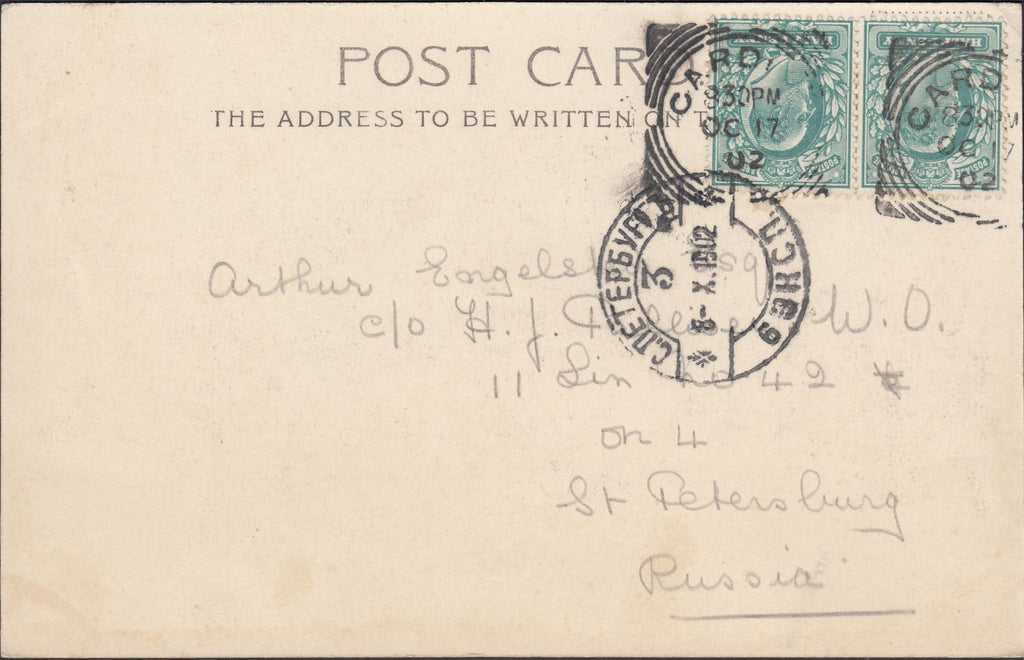 POST CARD
THE ADDRESS TO BE WRITTEN ON T
CARDI
830PM
OC 17
02
CARD
830PM
OC 17
02
С.ПЕТЕРБУРГЪ
3
8-X.1902
Arthur Esq
c/o H. J. W. O.
11 Lin no 42
on 4
St Petersburg
Russia